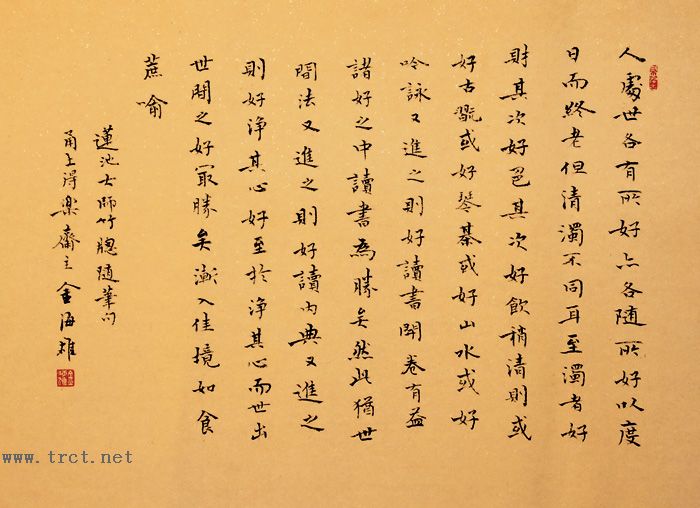 人處世各有所好亦各隨所好以度
日而終老但清濁不同耳至濁者好
財其次好色其次好飲稍清則或
好古翫或好琴棊或好山水或好
吟詠又進之則好讀書開卷有益
諸好之中讀書為勝矣然此猶世
間法又進之則好讀內典又進之
則好淨其心好至於淨其心而世出
世間之好冣勝矣漸入佳境如食
蔗喻
蓮池大師竹牕隨筆句
甬上得樂齋主金海雄
www.trct.net